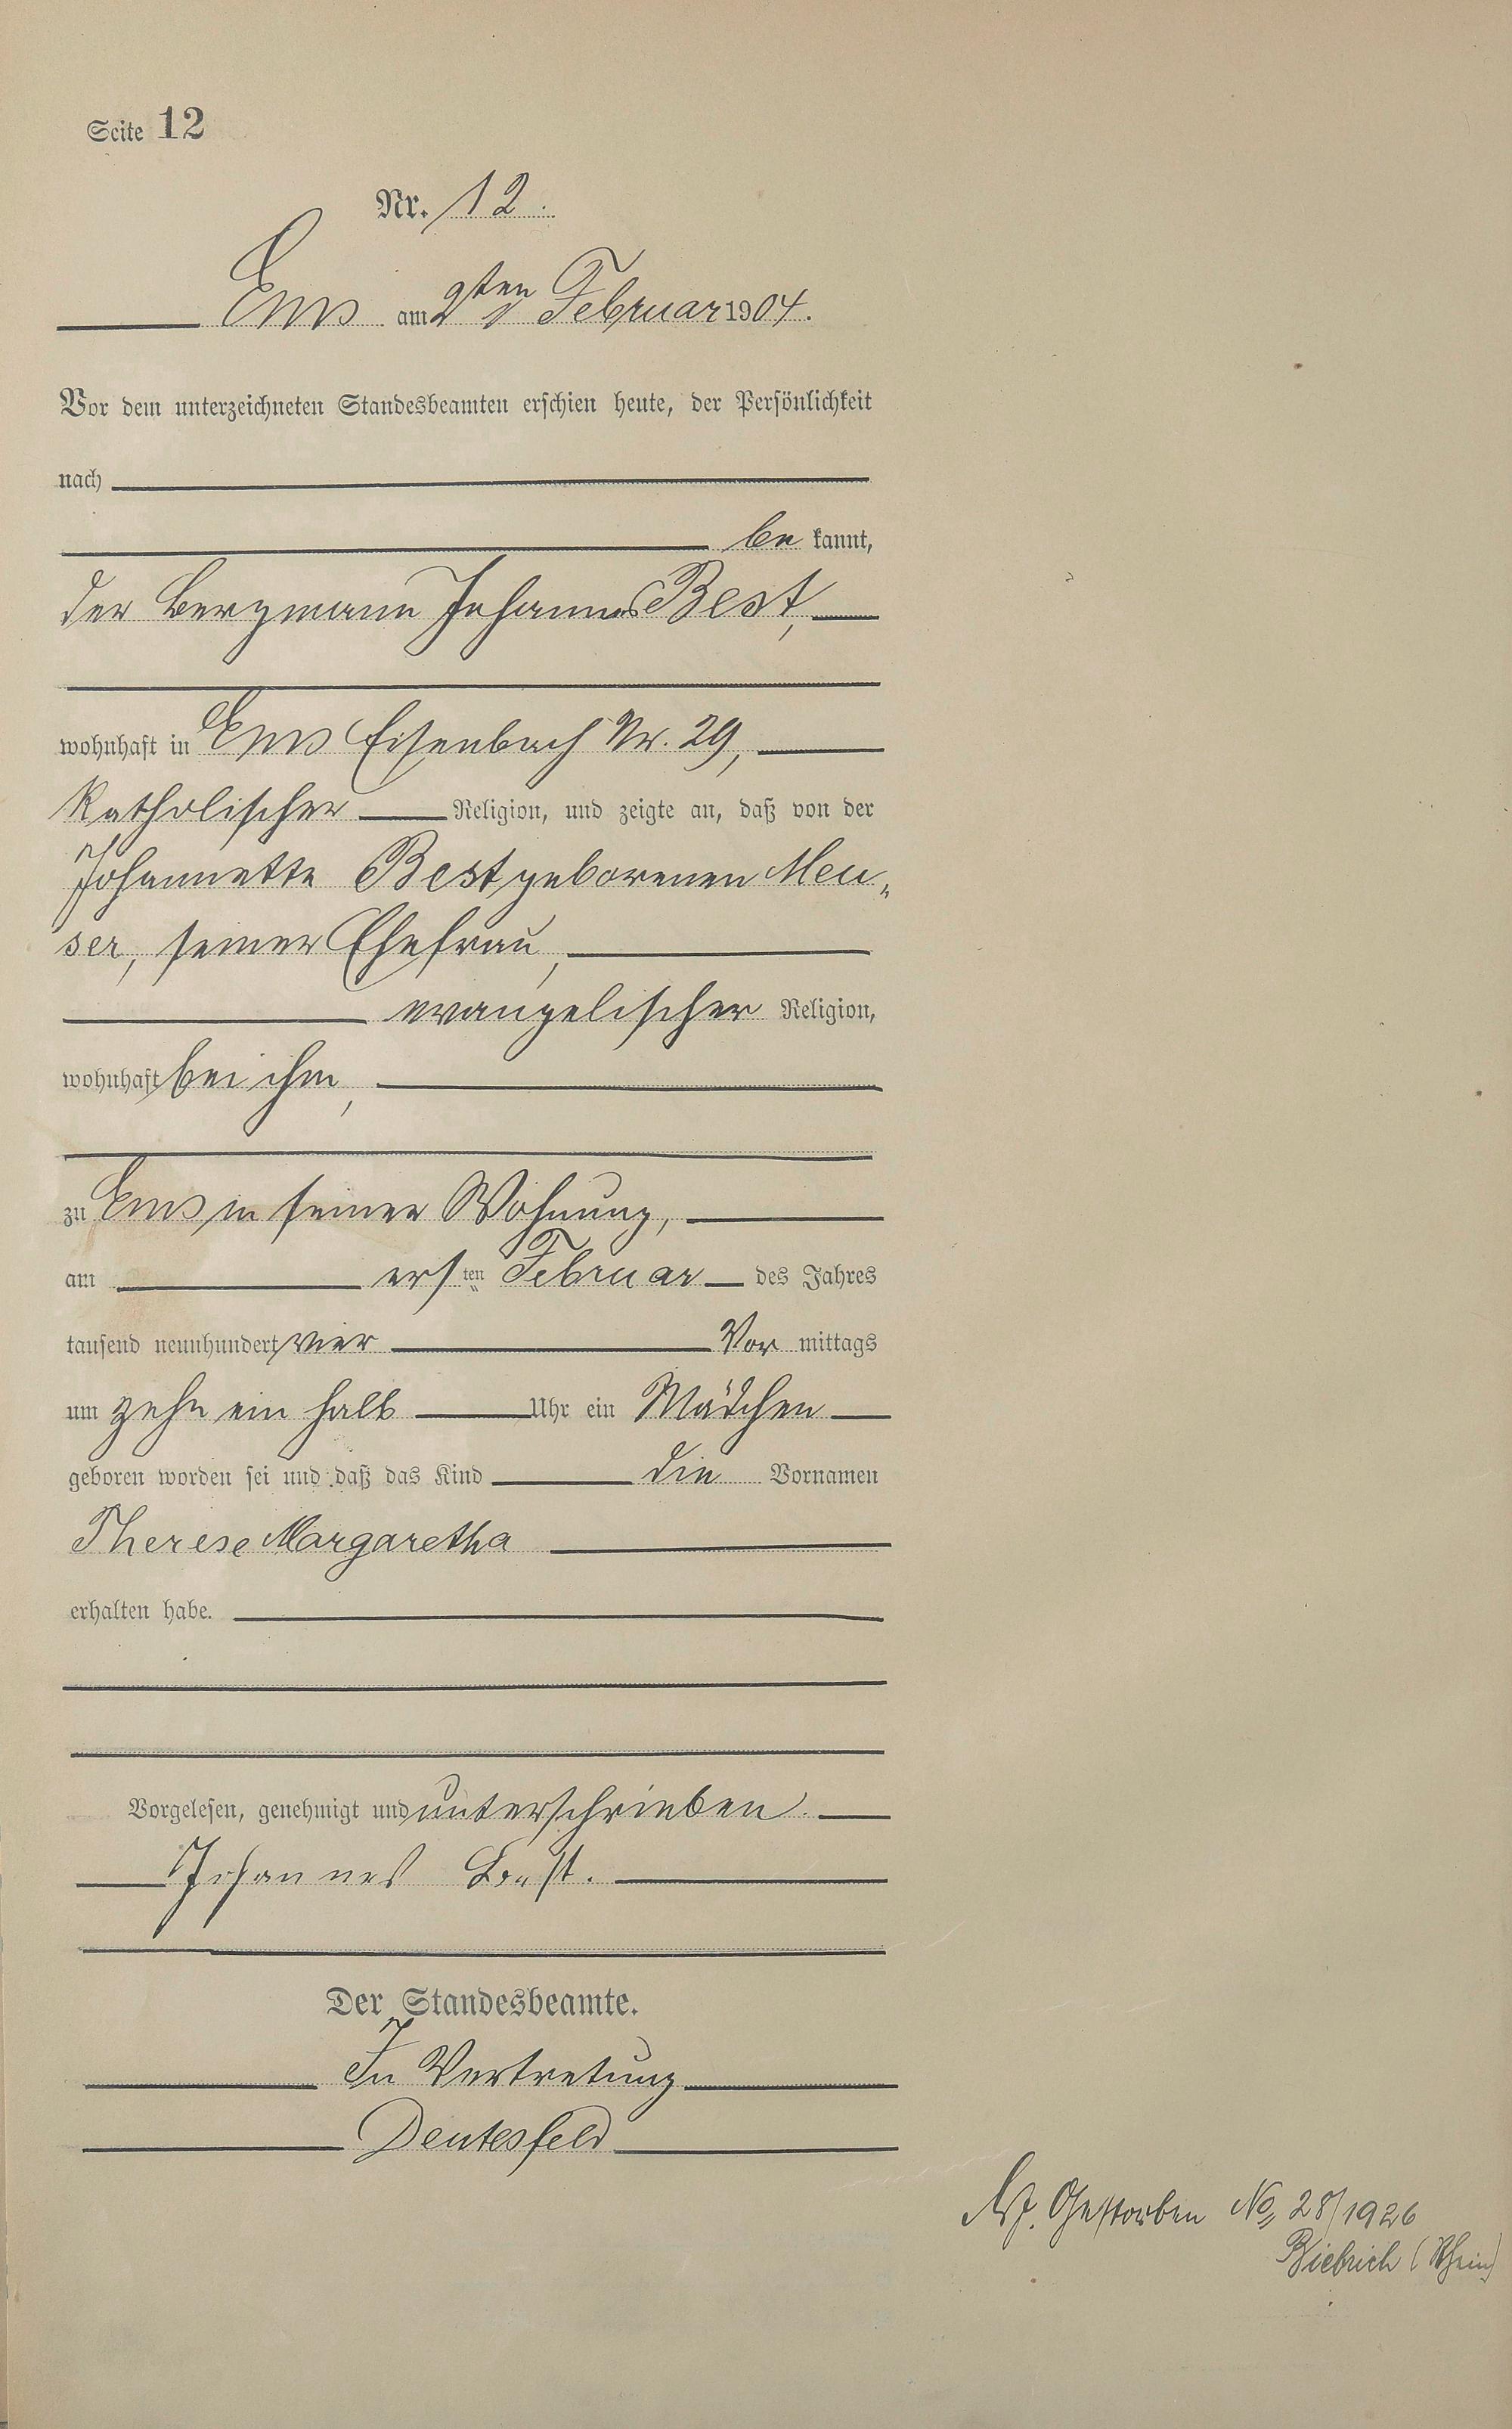 Seite 12
Nr. 12.
Ems am 9ten Februar 1904.
Vor dem unterzeichneten Standesbeamten erschien heute, der Persönlichkeit
nach
be kannt,
der Bergmann Johannes Best,
wohnhaft in Ems Eisenbach Nr. 29,
katholischer Religion, und zeigte an, daß von der
Johannette Best geborenen Meu„
ser, seiner Ehefrau,
evangelischer Religion,
wohnhaft bei ihm,
zu Ems in seiner Wohnung,
am ersten Februar des Jahres
tausend neunhundert vier Vor mittags
um zehn ein halb Uhr ein Mädchen
geboren worden sei und daß das Kind die Vornamen
Therese Margaretha
erhalten habe.
Vorgelesen, genehmigt und unterschrieben.
Johannes Best.
Der Standesbeamte.
In Vertretung
Deutesfeld
Gestorben No 28/1926
Biebrich (Rhein)